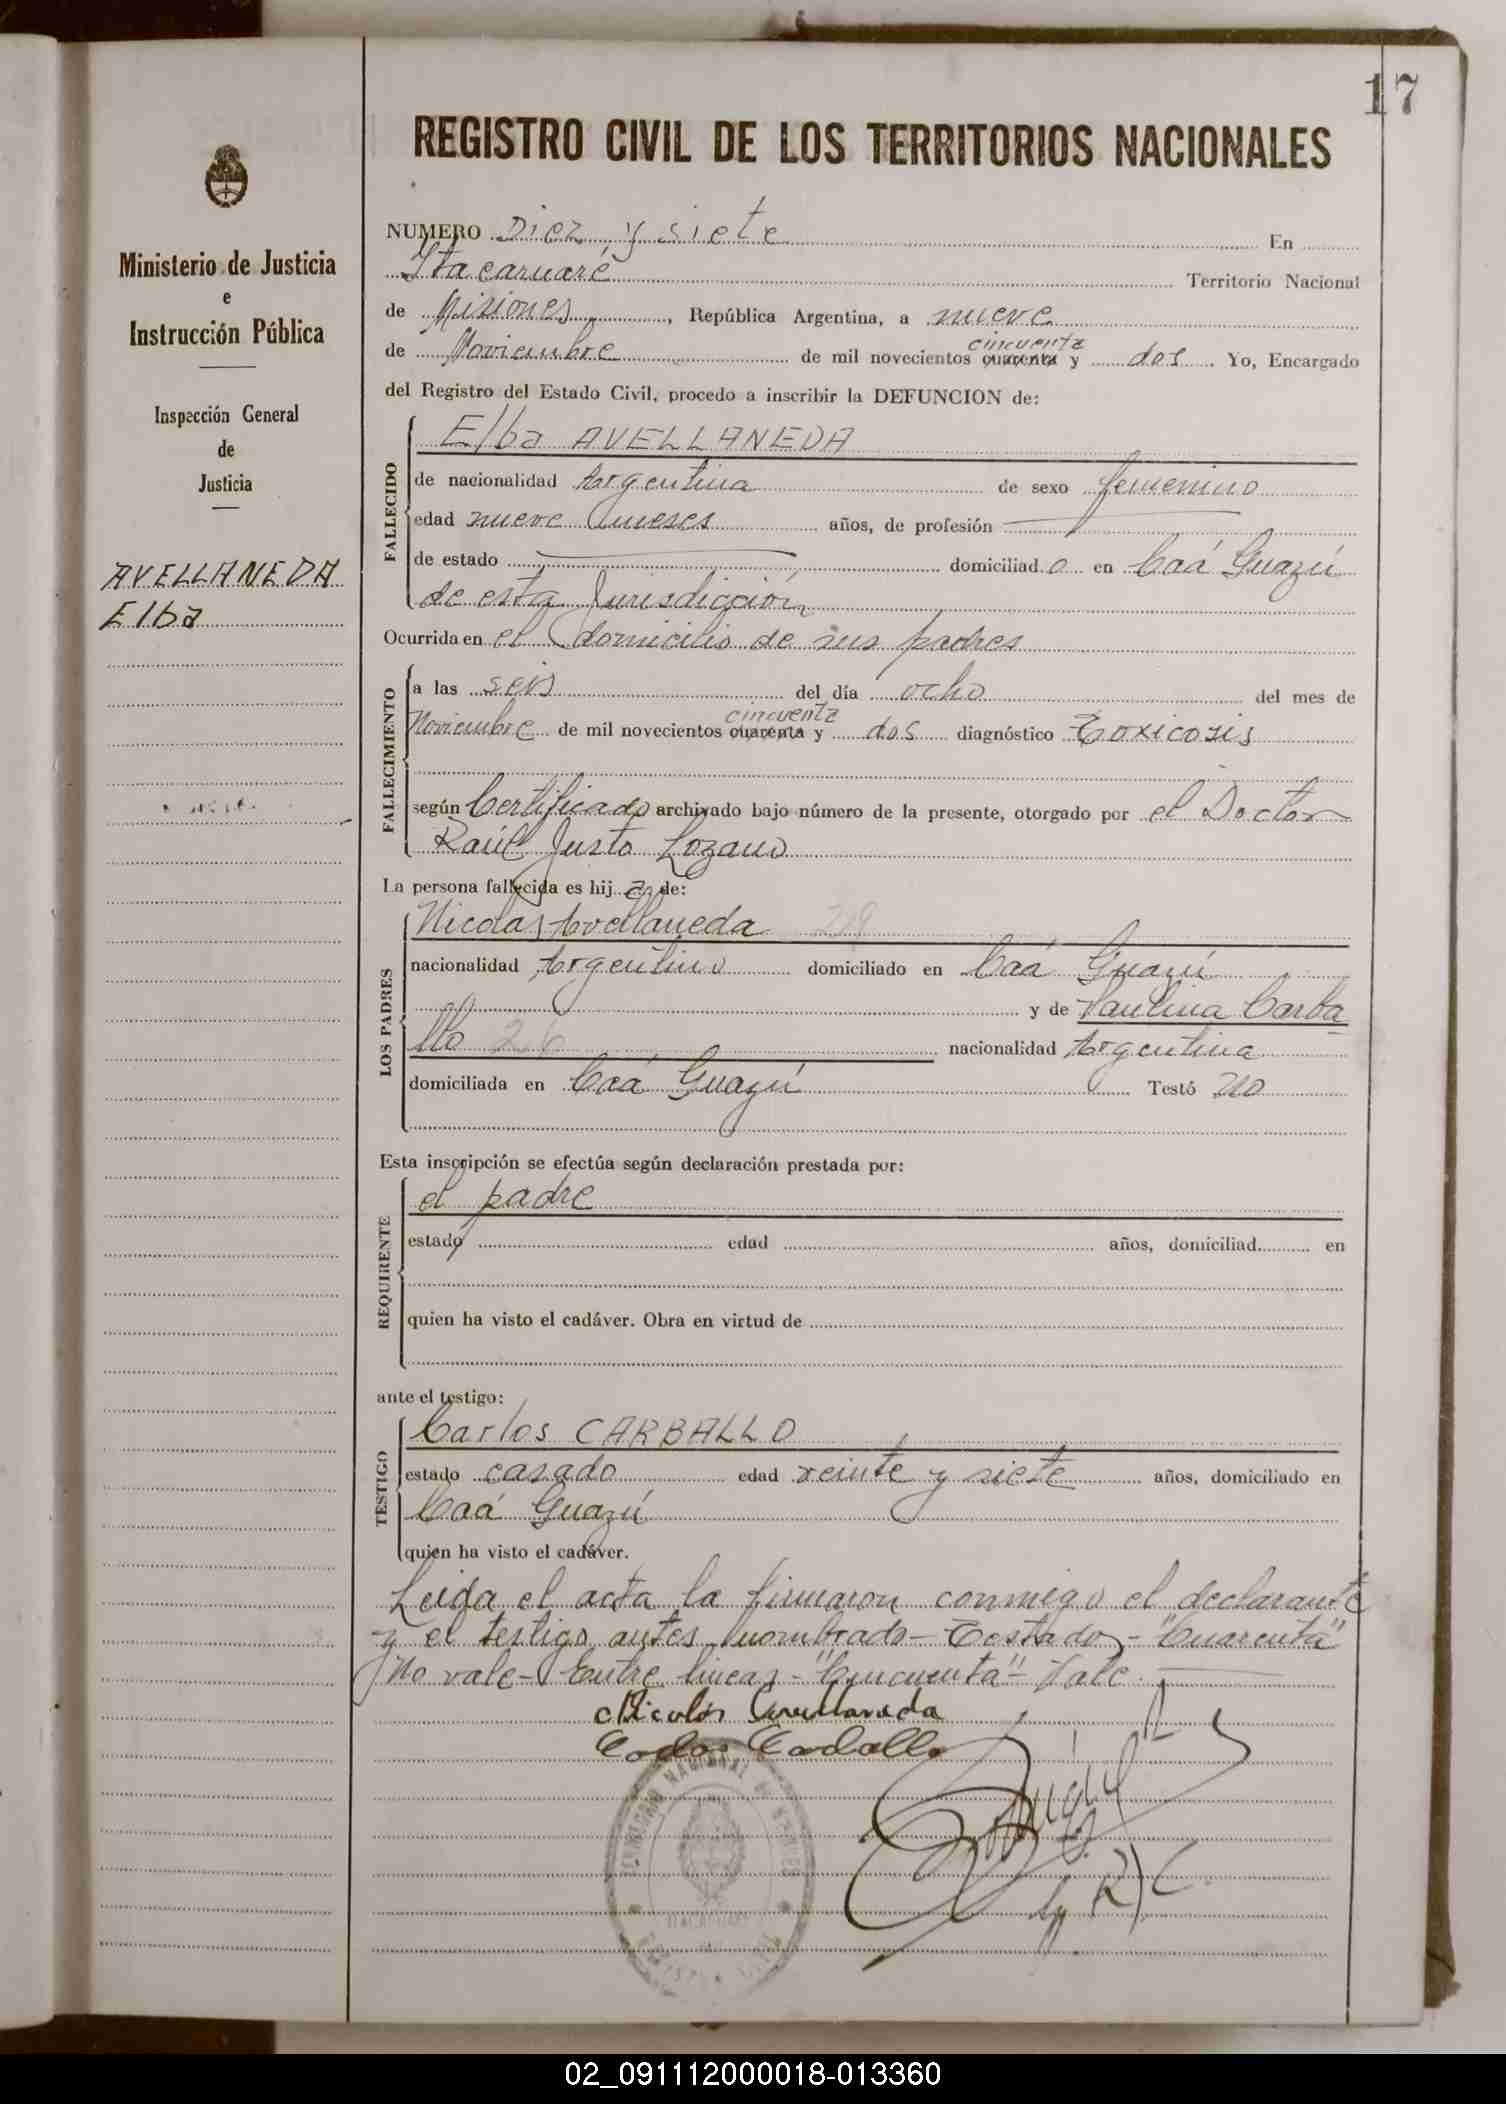 17
REGISTRO CIVIL DE LOS TERRITORIOS NACIONALES
Ministerio de Justicia
e
Instrucción Pública
Inspección General
de
Justicia
AVELLANEDA
Elba
NUMERO Diez y siete En
Itacaruaré Territorio Nacional
de Misiones, República Argentina, a nueve
cincuenta
de Noviembre de mil novecientos cuarenta y dos. Yo, Encargado
del Registro del Estado Civil, procedo a inscribir la DEFUNCION de:
FALLECIDO
Elba AVELLANEDA
de nacionalidad Argentina de sexo femenino
edad nueve meses años, de profesión
de estado domiciliado en Caá Guazú
de esta Jurisdicción
Ocurrida en el domicilio de sus padres
FALLECIMIENTO
a las seis del día ocho del mes de
cincuenta
Noviembre de mil novecientos cuarenta y dos diagnóstico Toxicosis
según Certificado archivado bajo número de la presente, otorgado por el Doctor
Raúl Justo Lozano
La persona fallecida es hija de:
LOS PADRES
Nicolas Avellaneda 29
nacionalidad Argentino domiciliado en Caá Guazú
y de Paulina Carba
llo 26 nacionalidad Argentina
domiciliada en Caá Guazú Testó no
Esta inscripción se efectúa según declaración prestada por:
REQUIRENTE
el padre
estado edad años, domiciliad en
quien ha visto el cadáver. Obra en virtud de
ante el testigo:
TESTIGO
Carlos CARBALLO
estado casado edad veinte y siete años, domiciliado en
Caá Guazú
quien ha visto el cadáver.
Leida el acta la firmaron conmigo el declarante
y el testigo antes nombrado- Testado- "Cuarenta"
No vale- Entre lineas- "Cincuenta"- Vale.
Nicolás Avellaneda
Carlos Carballo
REGISTRO CIVIL
02_091112000018-013360